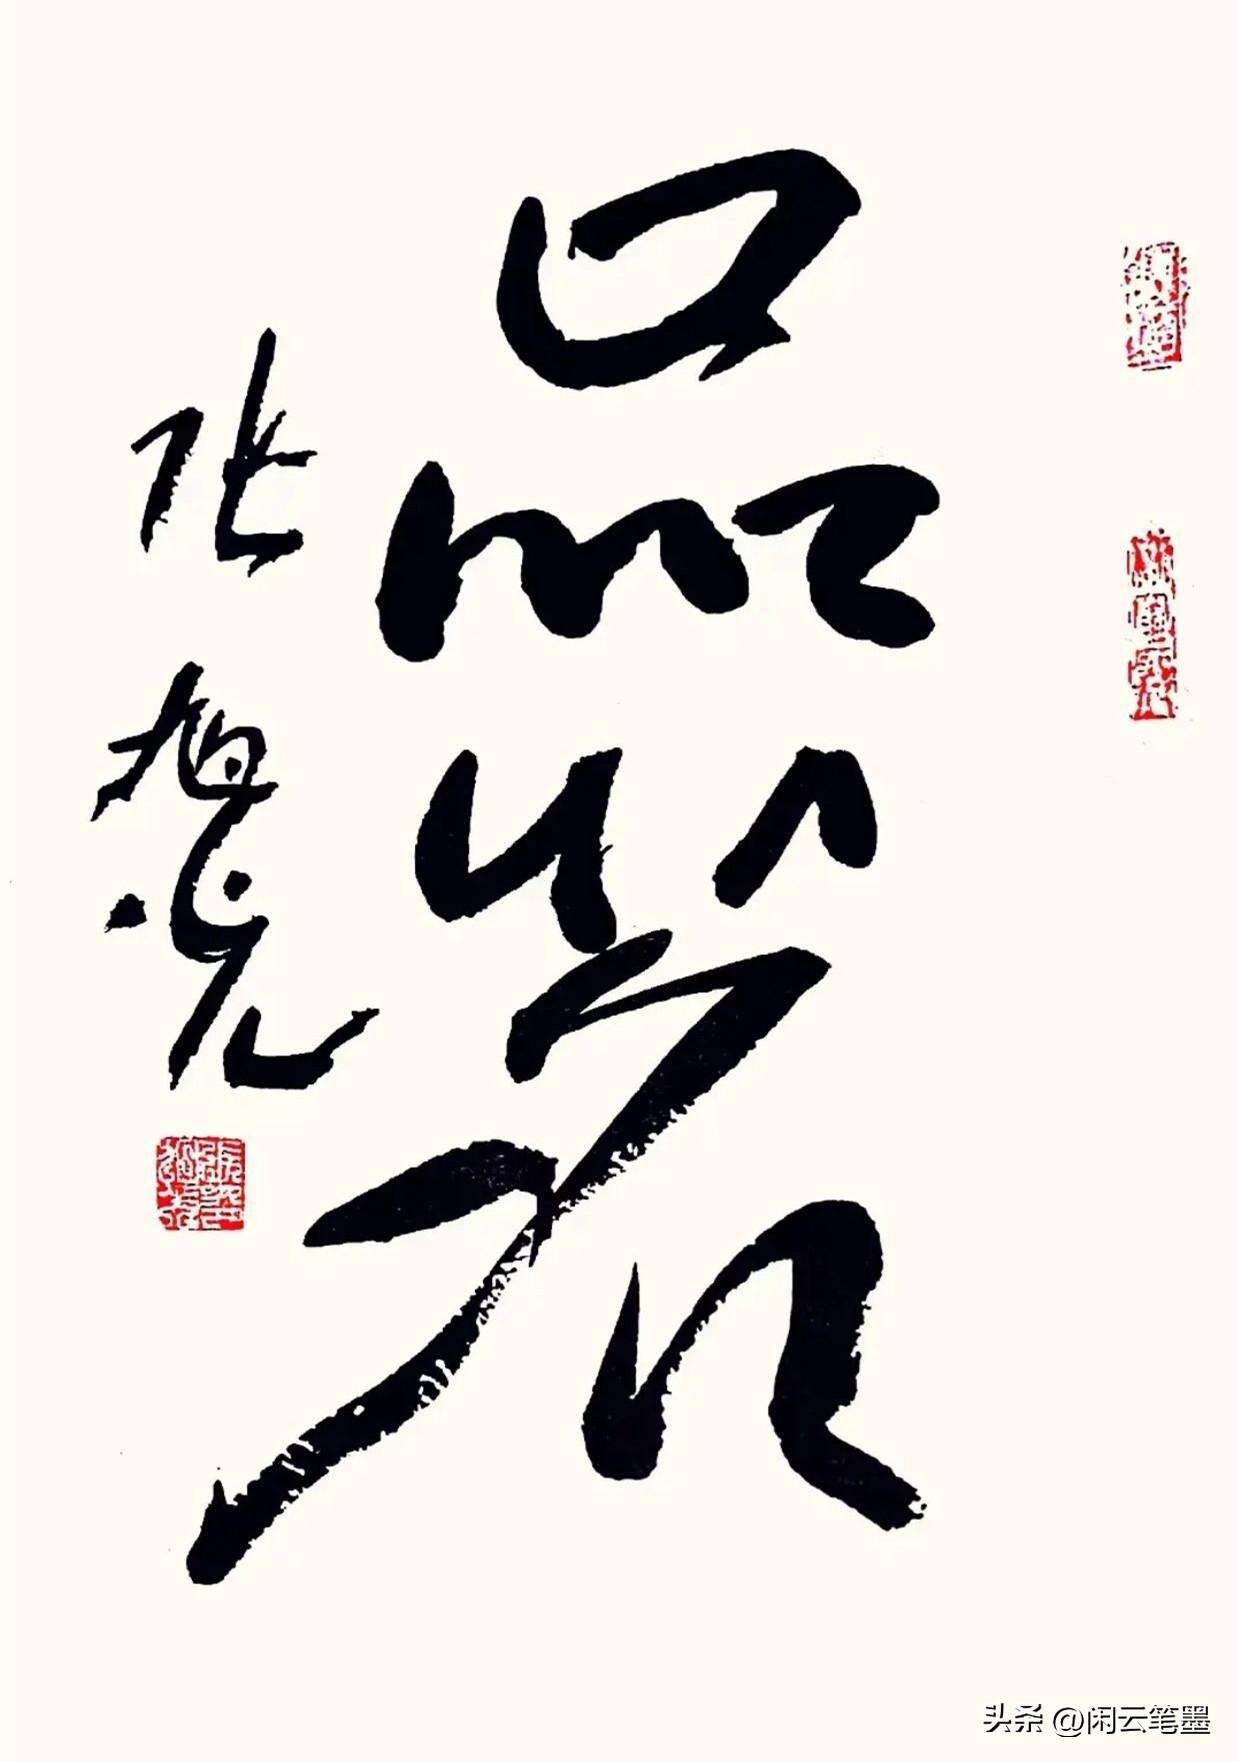 品茗
张旭光
头条 @闲云笔墨